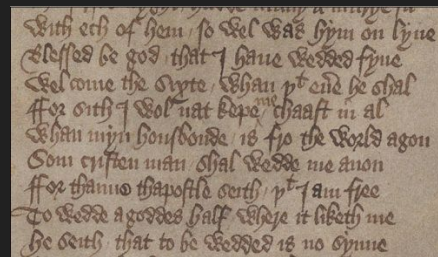 With ech of hem / so wel was hym on lyue
Blessed be god / that I haue wedded fyue
Wel come the sixte / whan þt euere he shal
ffor sith I wol nat kepe me chaast in al
Whan myn housbonde / is fro the world agon
Som cristen man / shal wedde me anon
ffor thanne thapostle seith / þt I am free
To wedde a goddes half / where it liketh me
He seith / that to be wedded is no synne